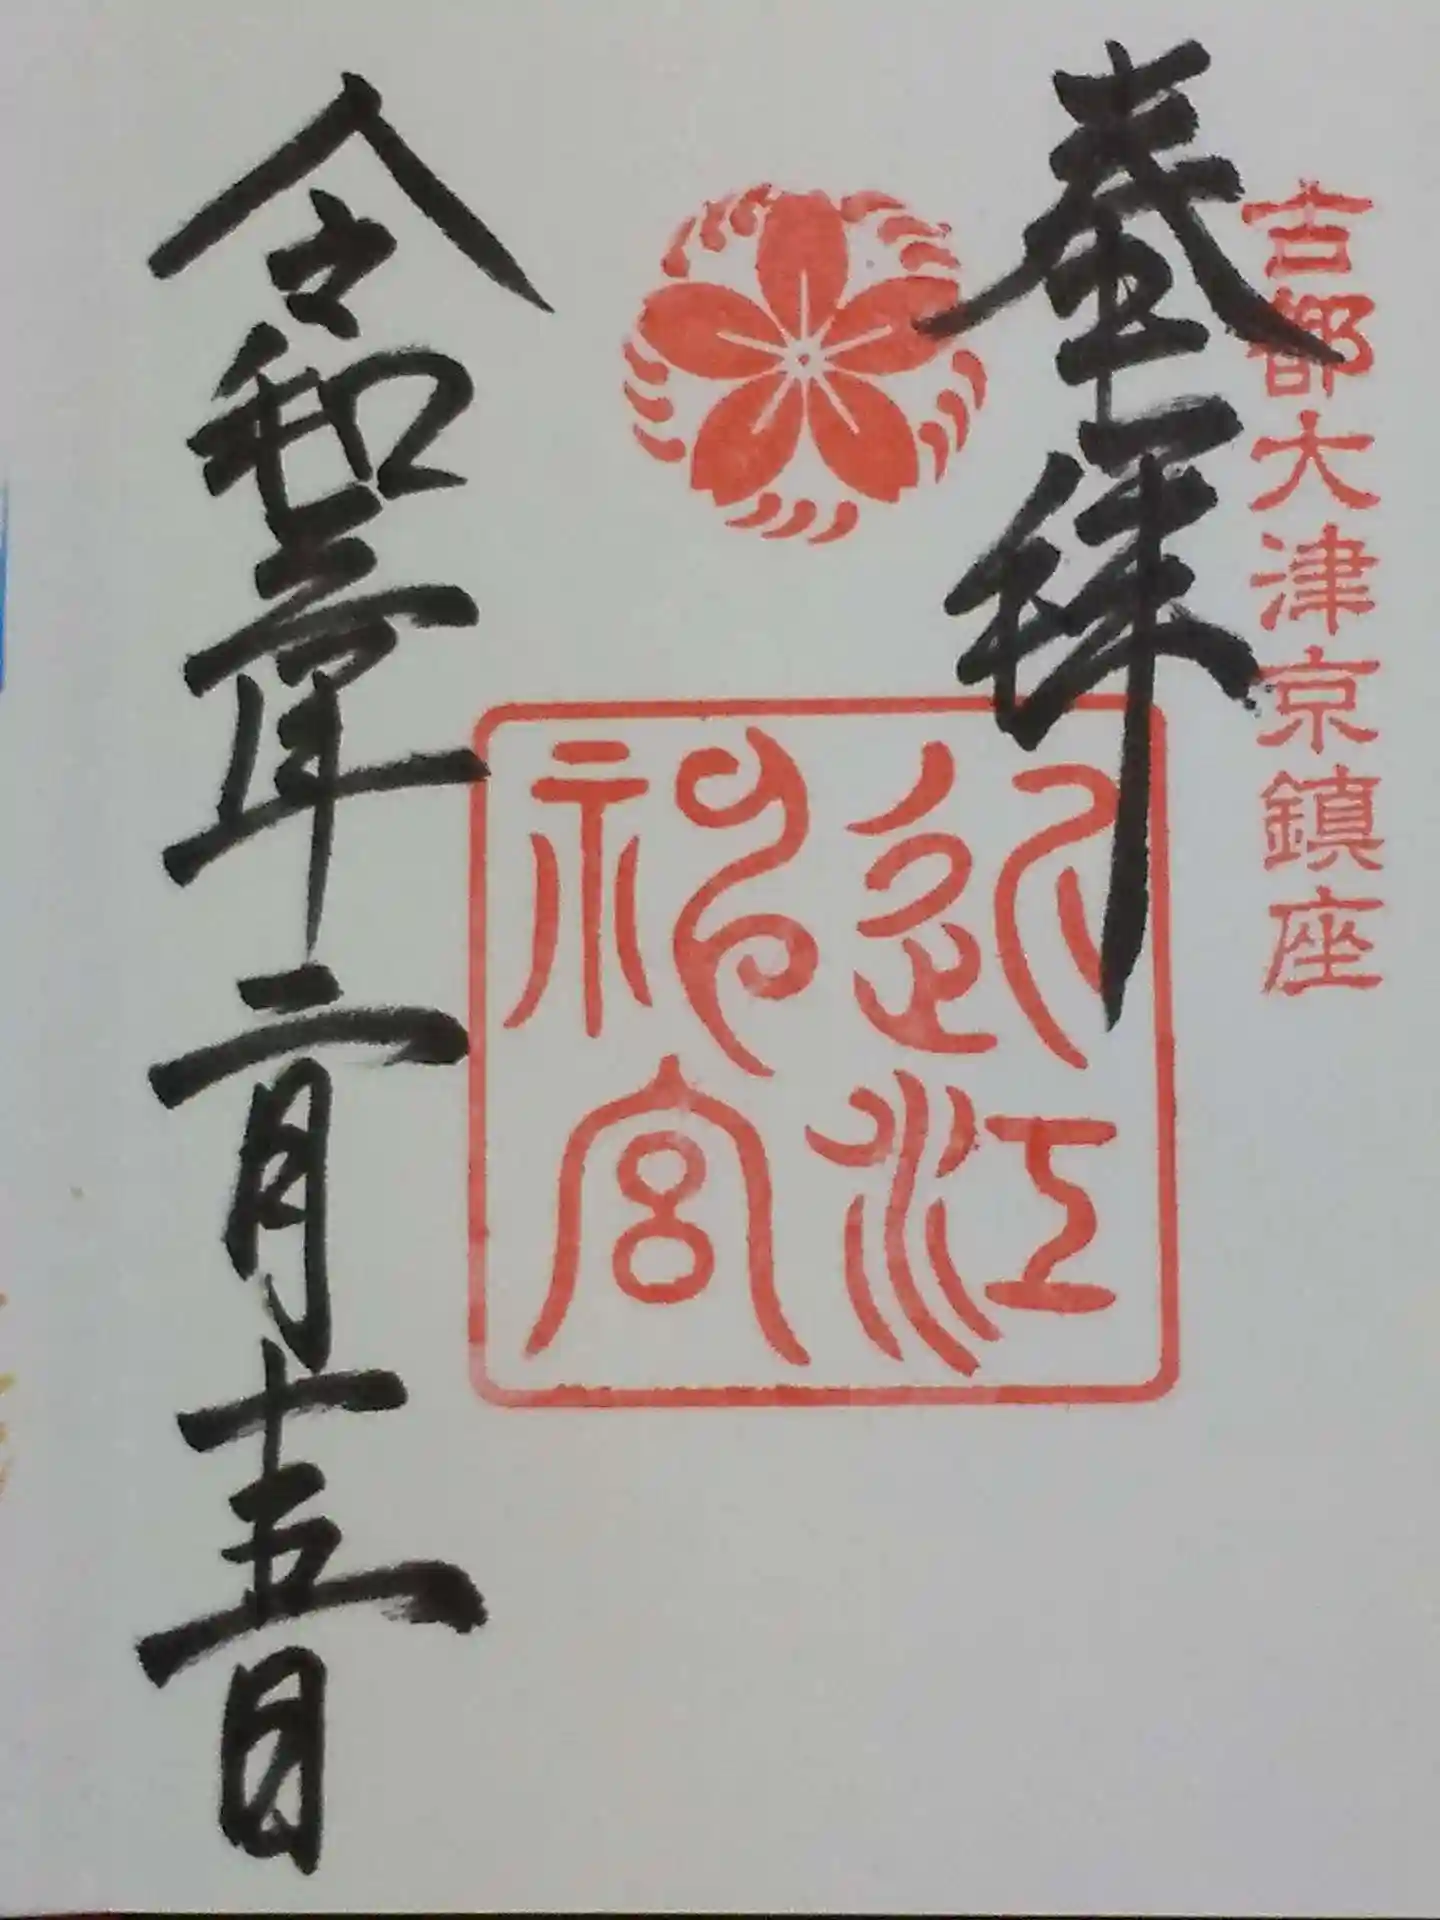 古都大津京鎮座
奉拝
近江
神宮
令和三年二月十五日